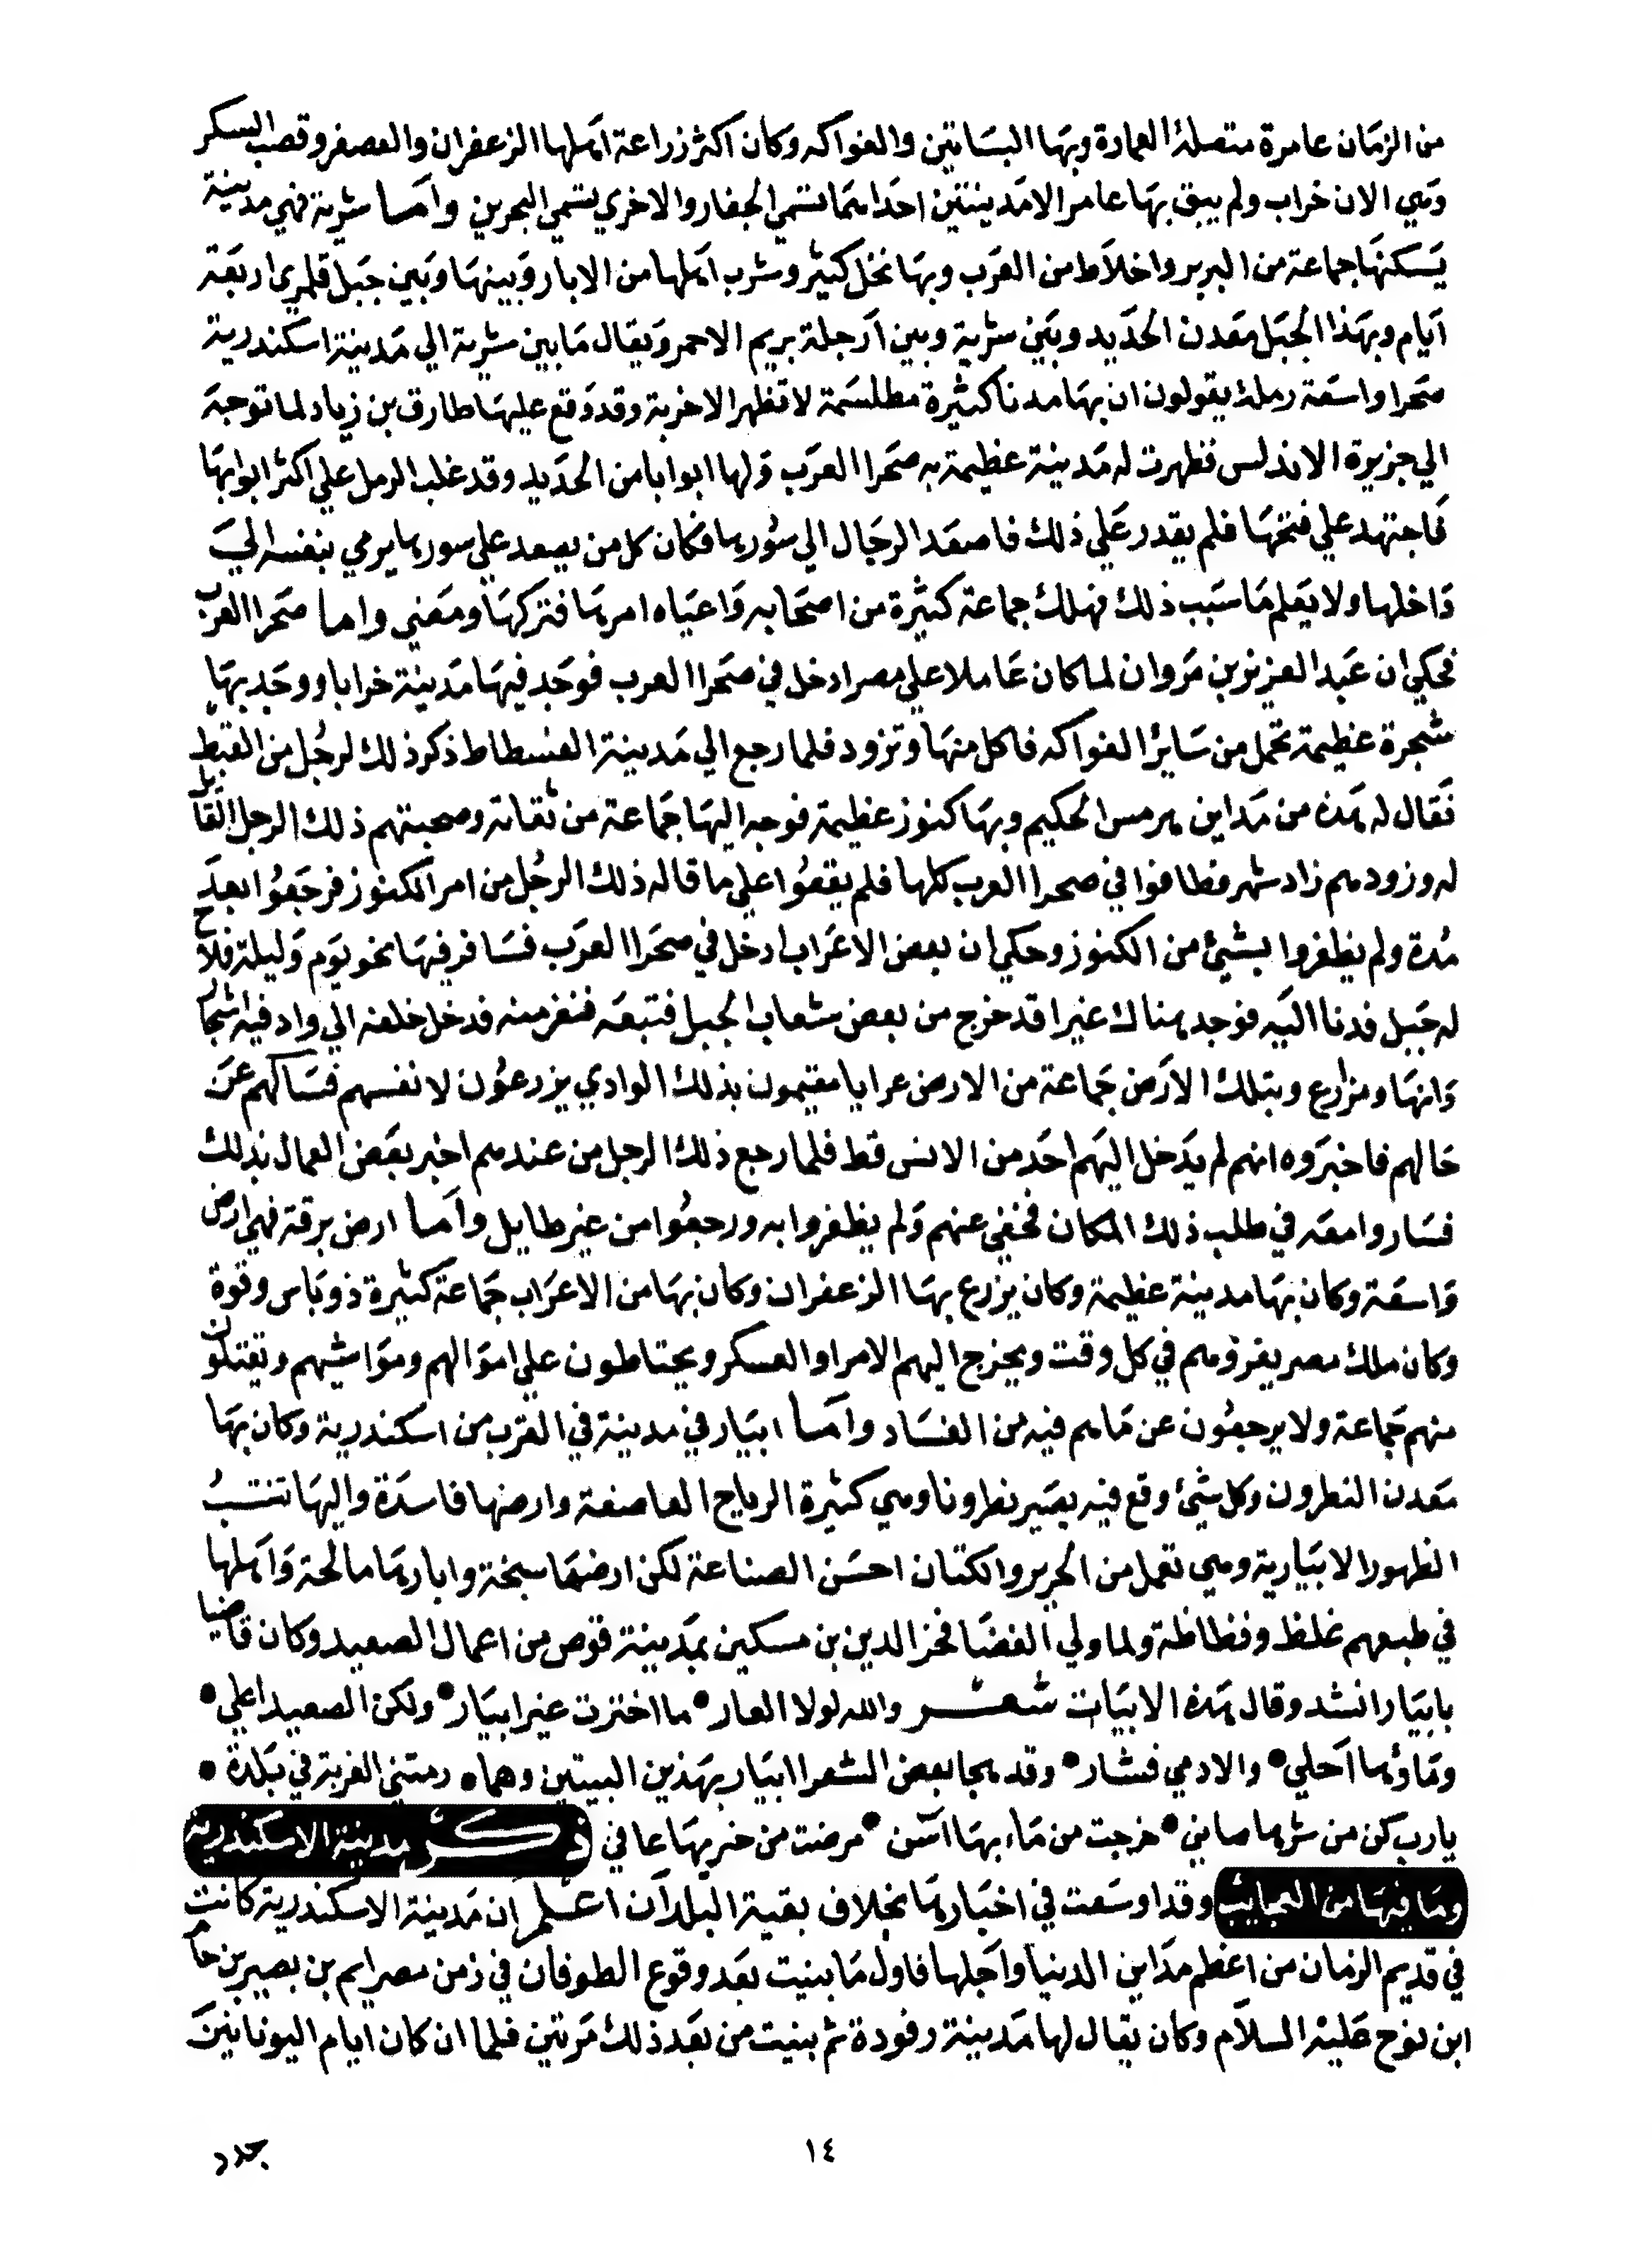 من الزمان عامرة متصلة العمارة وبها البساتين والفواكه وكان اكثر زراعة اهلها الزعفران والعصفر وقصب السكر
وهي الان خراب ولم يبق بها عامر الا مدينتين احداهما تسمي الجفار والاخري تسمي البحرين واما سثرية فهي مدينة
يسكنها جماعة من البربر واخلاط من العرب وبها نخل كثير وشرب اهلها من الابار وبينها وبين جبل قلمري اربعة
ايام وبهذا الجبل معدن الحديد وبين سثرية وبين ارجلة بريم الاحمر ويقال مابين سثرية الي مدينة اسكندرية
صحرا واسعة رملة يقولون ان بها مدنا كثيرة مطلسمة لا تظهر الا خربة وقد وقع عليها طارق بن زياد لما توجه
الي جزيرة الاندلس فظهرت له مدينة عظيمة به صحرا العرب ولها ابوابا من الحديد وقد غلب الرمل علي اكثر ابوابها
فاجتهد علي فتحها فلم يقدر علي ذلك فاصعد الرجال الي سورها فكان كل من يصعد علي سورها يرمي بنفسه الي
داخلها ولا يعلم ما سبب ذلك فهلك جماعة كثيرة من اصحابه واعياه امرها فتركها ومضي واما صحرا العرب
فحكي ان عبد العزيز بن مروان لما كان عاملا علي مصر ادخل في صحرا العرب فوجد فيها مدينة خرابا ووجد بها
شجرة عظيمة تحمل من ساير الفواكه فاكل منها وتزود فلما رجع الي مدينة الفسطاط ذكر ذلك لرجل من القبط
فقال له هذه من مداين هرمس الحكيم وبها كنوز عظيمة فوجه اليها جماعة من ثقاته وصحبتهم ذلك الرجل القايل
له وزودهم زاد شهر فطافوا في صحرا العرب كلها فلم يقعوا علي ما قاله ذلك الرجل من امر الكنوز فرجعوا بعد
مدة ولم يظفروا بشيئ من الكنوز وحكي ان بعض الاعراب دخل في صحرا العرب فسافر فيها نحو يوم وليلة فلاح
له جبل فدنا اليه فوجد هناك عنيرا قد خرج من بعض شعاب الجبل فتبعه فنفر منه فدخل خلفه الي واد فيه اشجار
وانها ومزارع وبتلك الارض جماعة من الارض عرايا مقيمون بذلك الوادي يزرعون لانفسهم فساكهم عن
حالهم فاخبروه انهم لم يدخل اليهم احد من الانس قط فلما رجع ذلك الرجل من عندهم اخبر بعض العمال بذلك
فساروا معه في طلب ذلك المكان فخفي عنهم ولم يظفروا به ورجعوا من غير طايل واما ارض برقة فهي ارض
واسعة وكان بها مدينة عظيمة وكان يزرع بها الزعفران وكان بها من الاعراب جماعة كثيرة ذو باس وقوة
وكان ملك مصر يغزوهم في كل وقت ويخرج اليهم الامرا والعسكر ويحتاطون علي اموالهم ومواشيهم ويقتلون
منهم جماعة ولا يرجعون عن ماهم فيه من الفساد واما ابيار في مدينة في القرب من اسكندرية وكان بها
معدن النطرون وكل شيئ وقع فيه يصير نطرونا وهي كثيرة الرياح العاصفة وارضها فاسدة واليها تنتسب
الظهور الابيارية وهي تعمل من الحرير والكتان احسن الصناعة لكن ارضها سبخة وابارها مالحة واهلها
في طبعهم غلظ وفظاظة ولما ولي القضا فخر الدين بن مسكين بمدينة قوص من اعمال الصعيد وكان قاضيا
بابيار انشد وقال هذه الابيات شعر والله لولا العار • ما اخترت غير ابيار • ولكن الصعيد اعلي •
وماؤها احلي • والادمي فشار • وقد هجا بعض الشعرا ابيار بهذين البيتين وهما • رمتني الغربة في بلدة •
يارب كن من شرها صابني • خرجت من ماء بها اسن • مرضت من خبربها عافي ذكر مدينة الاسكندرية
وما فيها من العجايب وقد اوسعت في اخبارها بخلاف بقية البلدان اعلم ان مدينة الاسكندرية كانت
في قديم الزمان من اعظم مداين الدنيا واجلها فاول ما بنيت بعد وقوع الطوفان في زمن مصرايم بن بصير بن حام
ابن نوح عليه السلام وكان يقال لها مدينة رفودة ثم بنيت من بعد ذلك مرتين فلما ان كان ايام اليونانين
١٤
جدد